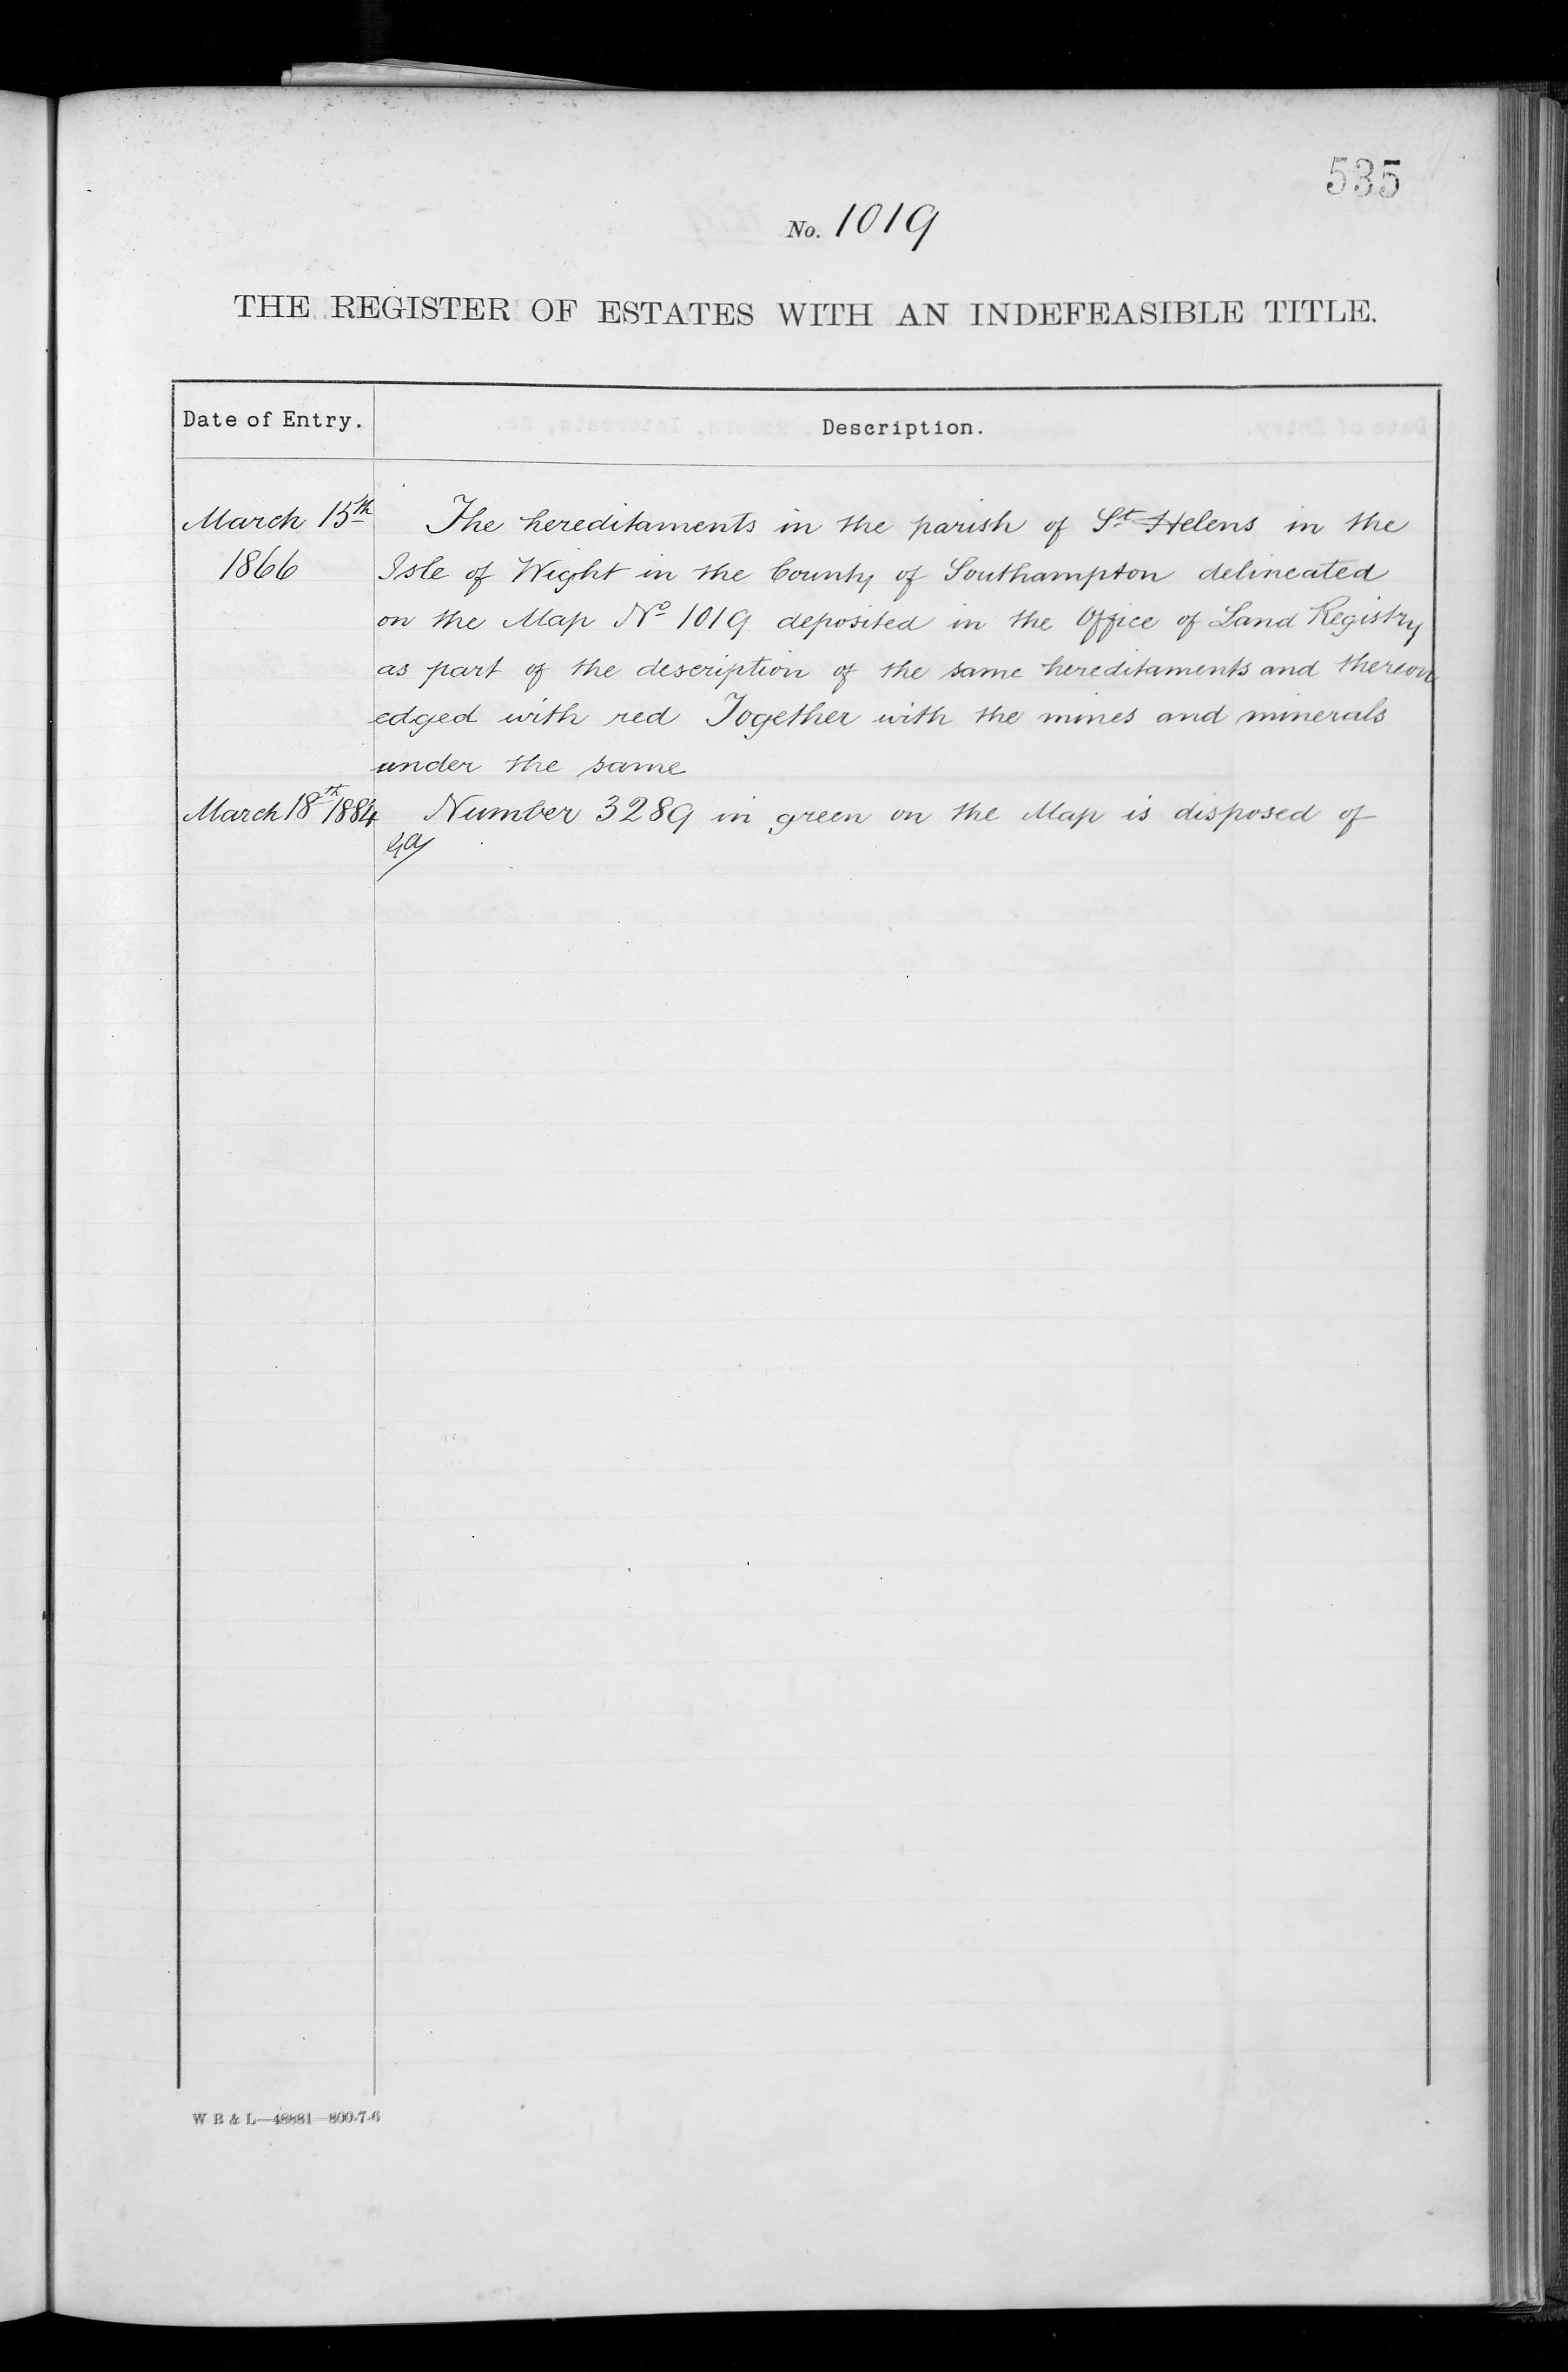 535
No. 1019
THE REGISTER OF ESTATES WITH AN INDEFEASIBLE TITLE.
Date of Entry. Description.
March 15th The hereditaments in the parish of St Helens in the
1866 Isle of Wight in the County of Southampton delineated
on the Map No 1019 deposited in the Office of Land Registry
as part of the description of the same hereditaments and thereon
edged with red Together with the mines and minerals
under the same
March 18th 1884 Number 3289 in green on the Map is disposed of
W B & L—48881—800-7-6